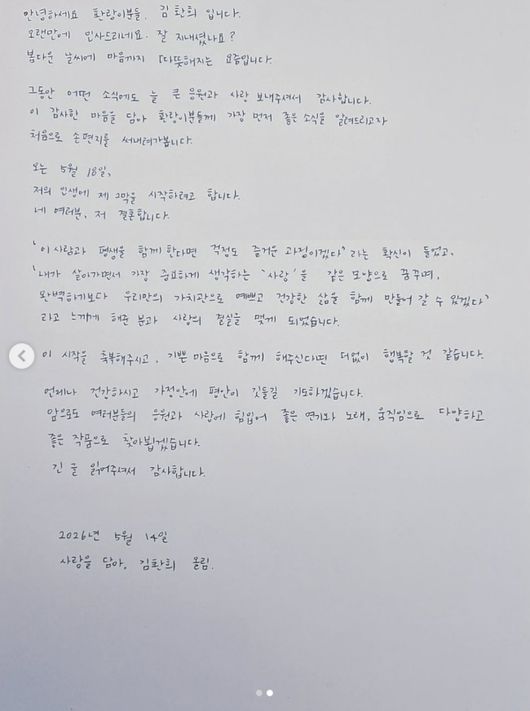 안녕하세요 환랑이분들, 김환희 입니다.
오랜만에 인사드리네요. 잘 지내셨나요?
봄다운 날씨에 마음까지 따뜻해지는 요즘입니다.
그동안 어떤 소식에도 늘 큰 응원과 사랑 보내주셔서 감사합니다.
이 감사한 마음을 담아 환랑이분들께 가장 먼저 좋은 소식을 알려드리고자
처음으로 손편지를 써내려가봅니다.
오는 5월 18일,
저의 인생에 제 2막을 시작하려고 합니다.
네 여러분, 저 결혼합니다.
'이 사람과 평생을 함께 한다면 걱정도 즐거운 과정이겠다' 라는 확신이 들었고,
'내가 살아가면서 가장 중요하게 생각하는 '사랑'을 같은 모양으로 꿈꾸며,
완벽하기보다 우리만의 가치관으로 예쁘고 건강한 삶을 함께 만들어 갈 수 있겠다'
라고 느끼게 해준 분과 사랑의 결실을 맺게 되었습니다.
이 시작을 축복해주시고, 기쁜 마음으로 함께 해주신다면 더없이 행복할 것 같습니다.
언제나 건강하시고 가정안에 평안이 깃들길 기도하겠습니다.
앞으로도 여러분들의 응원과 사랑에 힘입어 좋은 연기와 노래, 움직임으로 다양하고
좋은 작품으로 찾아뵙겠습니다.
긴 글 읽어주셔서 감사합니다.
2026년 5월 14일
사랑을 담아, 김환희 올림.